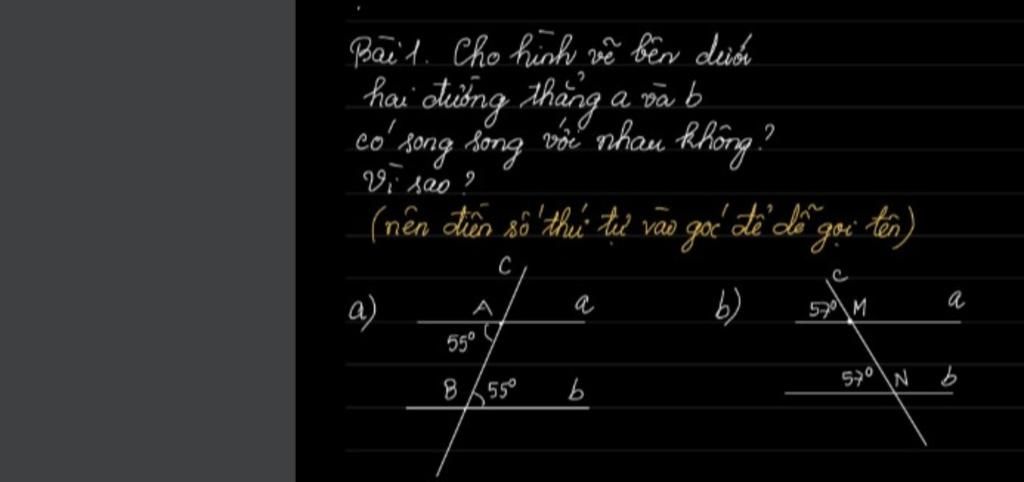 Bài 1. Cho hình vẽ bên dưới
hai đường thẳng a và b
có song song với nhau không?
Vì sao?
(nên điền số thứ tự vào góc để dễ gọi tên)
a)
c
A
a
55°
B
55°
b
b)
c
57°
M
a
57°
N
b